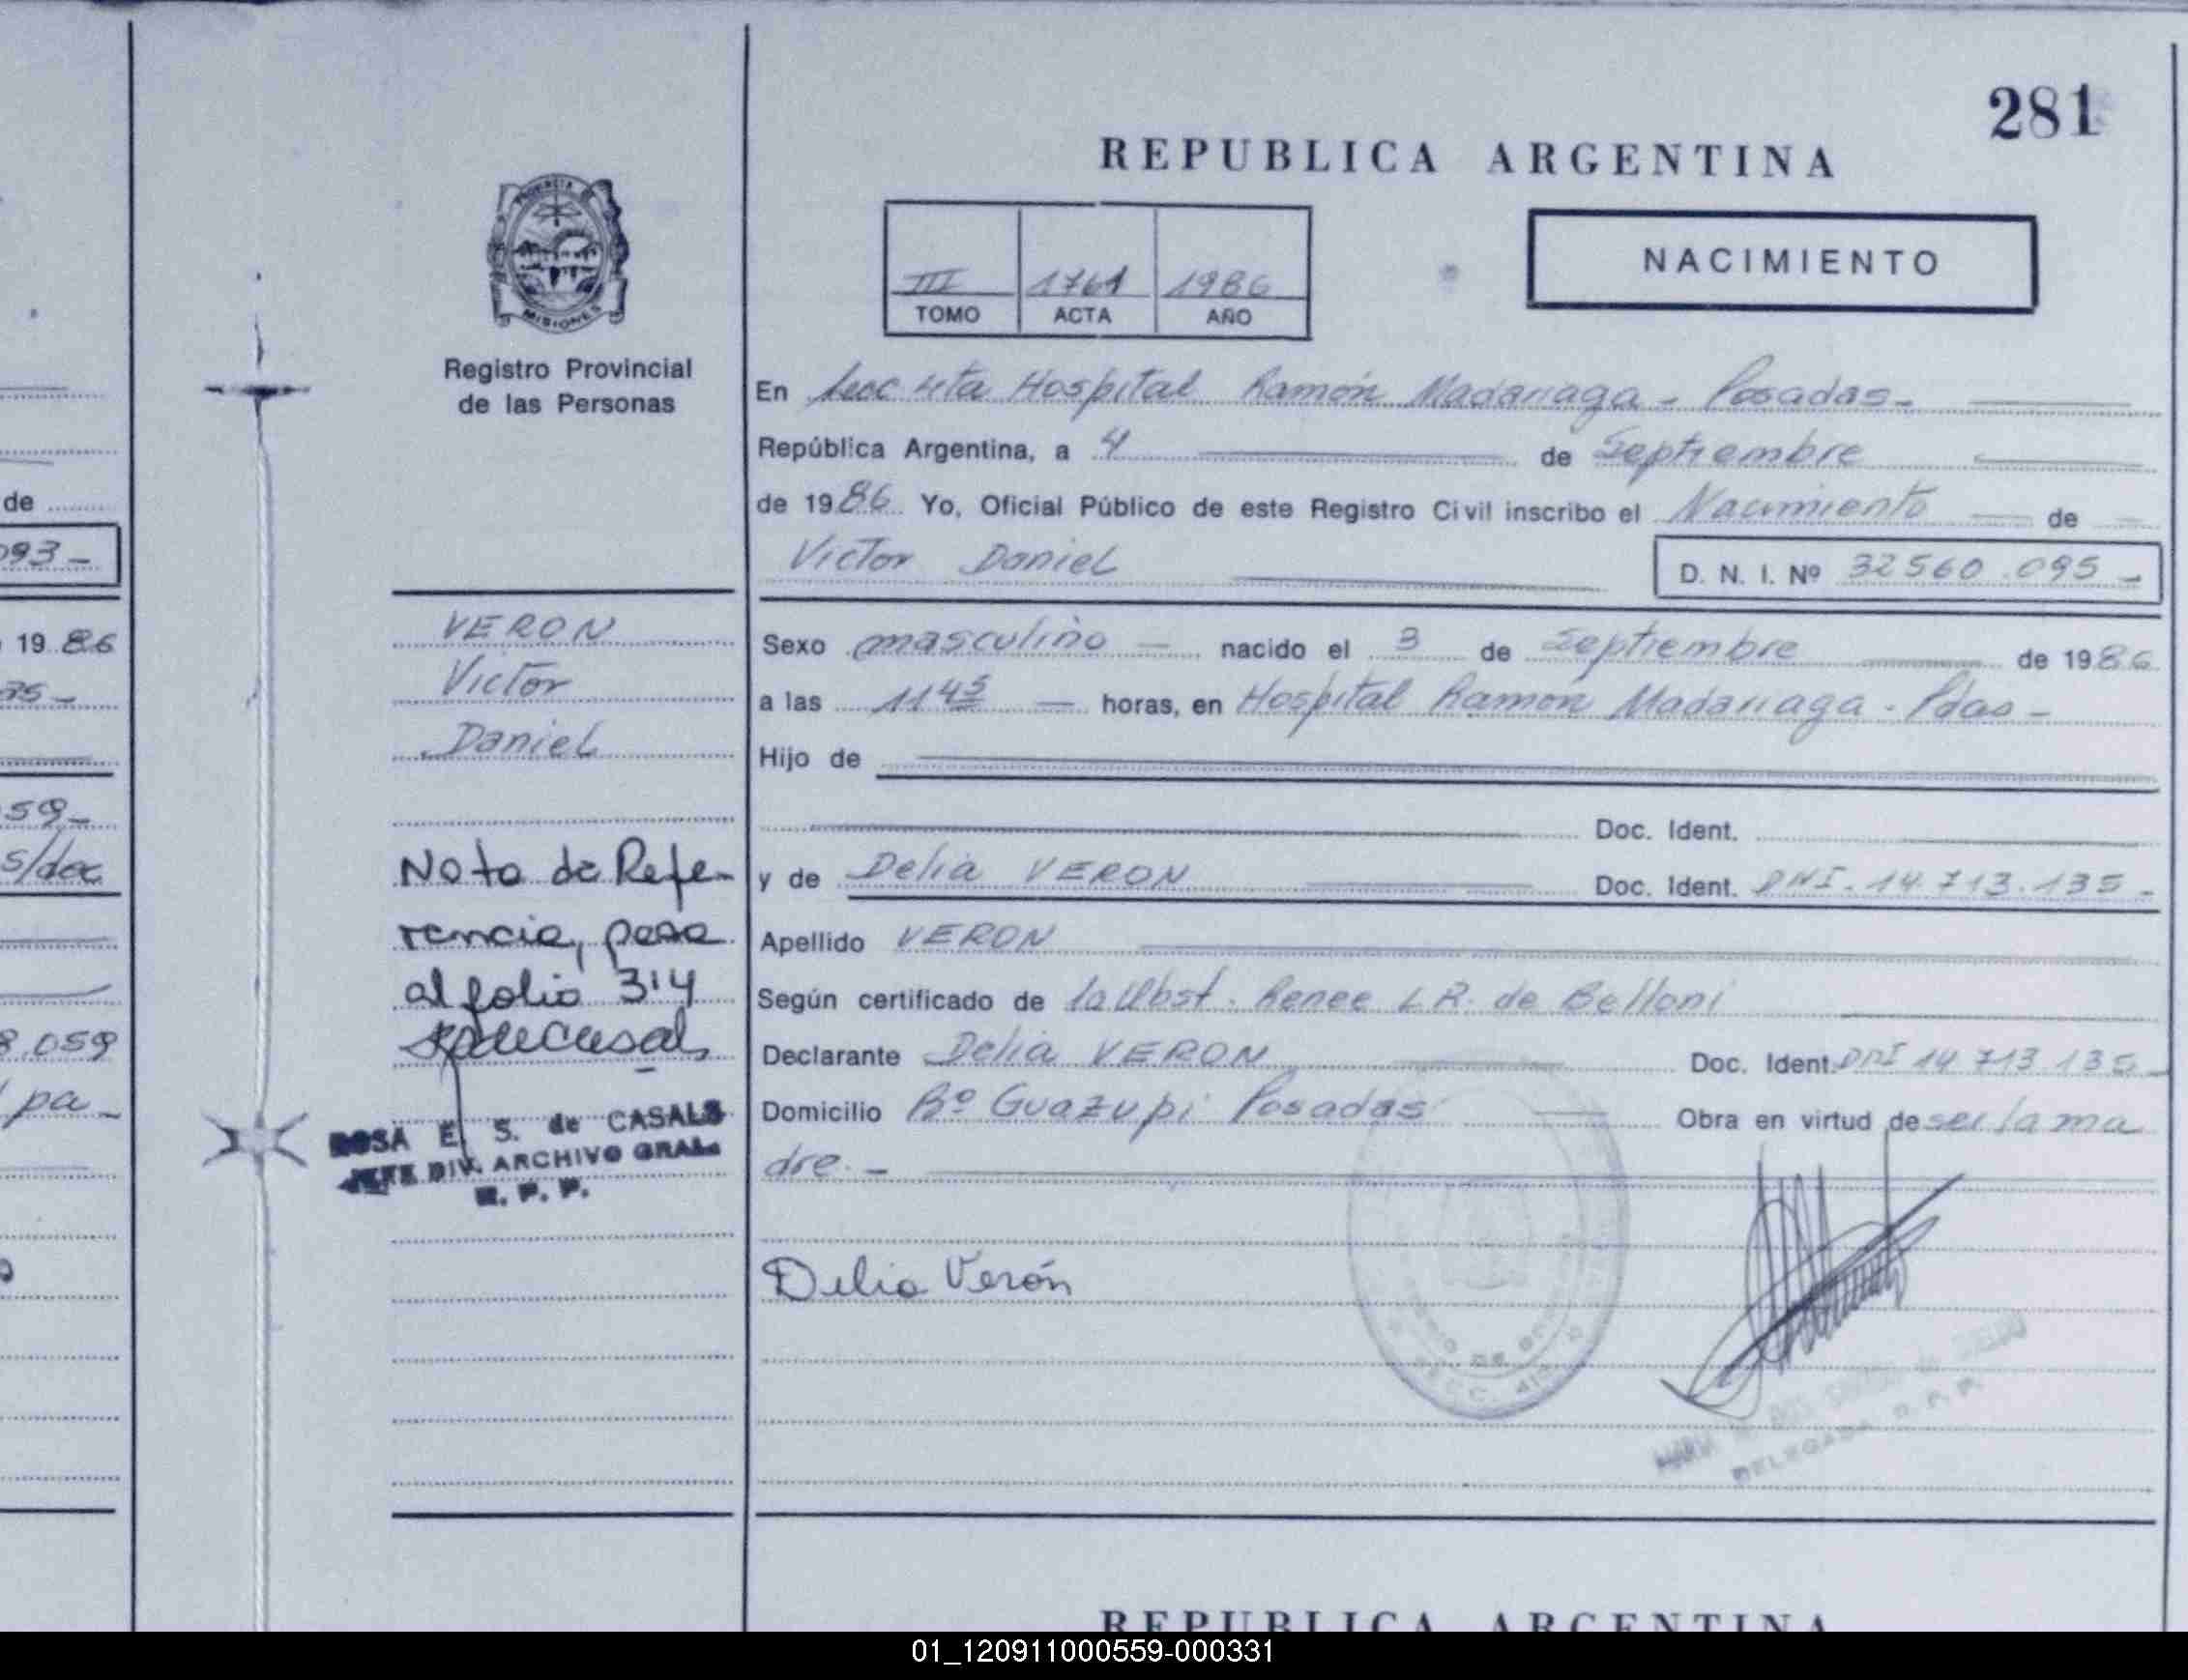 281
REPUBLICA ARGENTINA
PROVINCIA DE
MISIONES
III 1761 1986
TOMO ACTA AÑO
NACIMIENTO
Registro Provincial
de las Personas
En Secc 4ta Hospital Ramón Madariaga - Posadas -
República Argentina, a 4 de Septiembre
de 1986 Yo, Oficial Público de este Registro Civil inscribo el Nacimiento de
Victor Daniel D. N. I. Nº 32560.095 -
Sexo masculino nacido el 3 de Septiembre de 1986
a las 11 45 horas, en Hospital Ramon Madariaga - Pdas -
Hijo de
Doc. Ident.
y de Delia VERON Doc. Ident. DNI. 14.713.135 -
Apellido VERON
Según certificado de la Obst. Renee L R. de Belloni
Declarante Delia VERON Doc. Ident. DNI 14 713 135 -
Domicilio Bº Guazupi Posadas Obra en virtud de ser la ma
dre. -
Delia Verón
DELEGADA R. P. P.
VERON
Victor
Daniel
Nota de Refe-
rencia, pasa
al folio 314
ROSA E. S. de CASALS
JEFE DIV. ARCHIVO GRAL.
R. P. P.
de
093 -
19 86
75 -
59 -
s/doc
8.059
pa -
REPUBLICA ARGENTINA
01_120911000559-000331